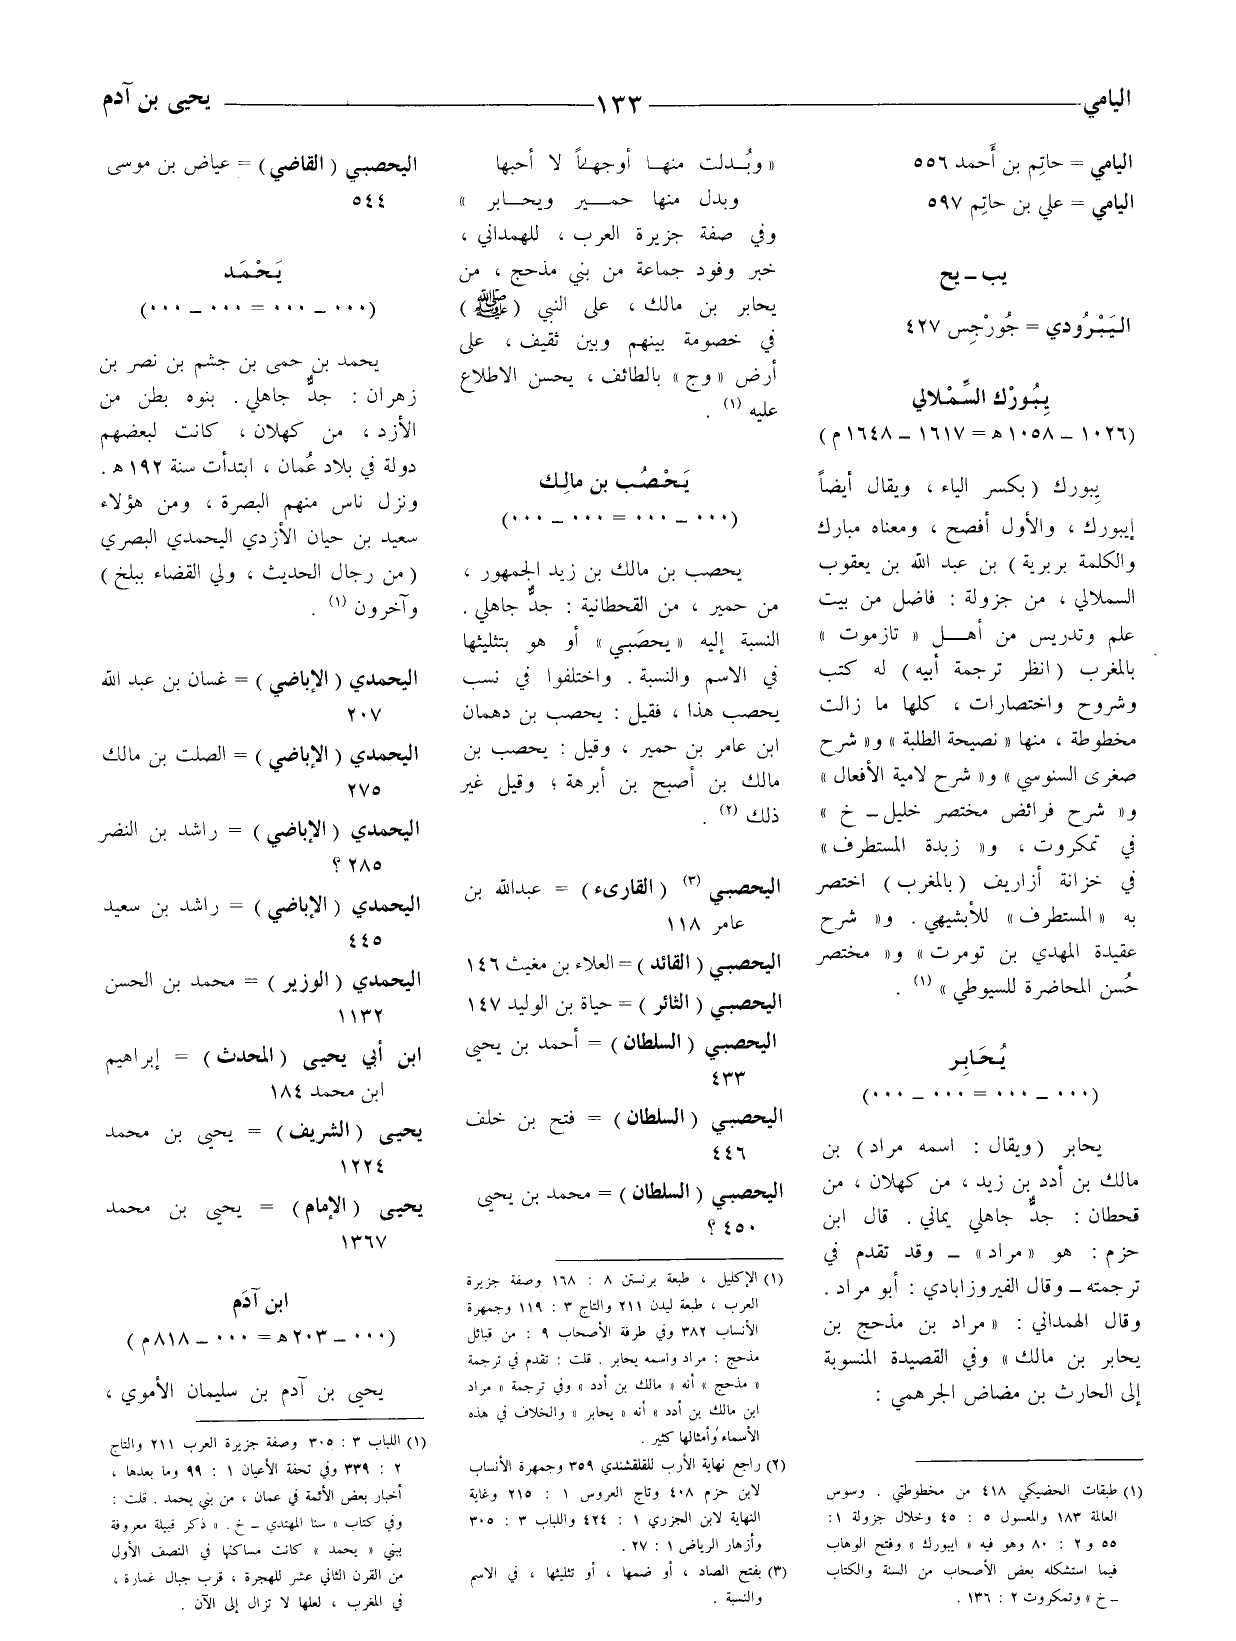 اليامي ١٣٣ يحيى بن آدم
اليامي = حاتِم بن أَحمد ٥٥٦
اليامي = علي بن حاتِم ٥٩٧
يب ـ يح
اليَبْرُودي = جُورْجِس ٤٢٧
يِبُورْك السِّمْلالي
(١٠٢٦ ـ ١٠٥٨ هـ = ١٦١٧ ـ ١٦٤٨ م)
يِبورك (بكسر الياء ، ويقال أيضاً
إيبورك ، والأول أفصح ، ومعناه مبارك
والكلمة بربرية) بن عبد الله بن يعقوب
السملالي ، من جزولة : فاضل من بيت
علم وتدريس من أهـل « تازموت »
بالمغرب (انظر ترجمة أبيه) له كتب
وشروح واختصارات ، كلها ما زالت
مخطوطة ، منها « نصيحة الطلبة » و« شرح
صغرى السنوسي » و« شرح لامية الأفعال »
و« شرح فرائض مختصر خليل ـ خ »
في تمكروت ، و« زبدة المستطرف »
في خزانة أزاريف (بالمغرب) اختصر
به « المستطرف » للأبشيهي . و« شرح
عقيدة المهدي بن تومرت » و« مختصر
حُسن المحاضرة للسيوطي » (١) .
يُحَابِر
(٠٠٠ ـ ٠٠٠ = ٠٠٠ ـ ٠٠٠)
يحابر (ويقال : اسمه مراد) بن
مالك بن أدد بن زيد ، من كهلان ، من
قحطان : جدٌّ جاهلي يماني . قال ابن
حزم : هو « مراد » ـ وقد تقدم في
ترجمته ـ وقال الفيروزابادي : أبو مراد .
وقال الهمداني : « مراد بن مذحج بن
يحابر بن مالك » وفي القصيدة المنسوبة
إلى الحارث بن مضاض الجرهمي :
(١) طبقات الحضيكي ٤١٨ من مخطوطتي . وسوس
العالمة ١٨٣ والمعسول ٥ : ٤٥ وخلال جزولة ١ :
٥٥ و ٢ : ٨٠ وهو فيه « ايبورك » وفتح الوهاب
فيما استشكله بعض الأصحاب من السنة والكتاب
ـ خ » وتمكروت ٢ : ١٣٦ .
« وبُـدلت منهـا أوجهـاً لا أحبها
وبدل منها حميـر ويحـابر »
وفي صفة جزيرة العرب ، للهمداني ،
خبر وفود جماعة من بني مذحج ، من
يحابر بن مالك ، على النبي (ﷺ)
في خصومة بينهم وبين ثقيف ، على
أرض « وج » بالطائف ، يحسن الاطلاع
عليه (١) .
يَحْصُب بن مالِك
(٠٠٠ ـ ٠٠٠ = ٠٠٠ ـ ٠٠٠)
يحصب بن مالك بن زيد الجمهور ،
من حمير ، من القحطانية : جدٌّ جاهلي .
النسبة إليه « يحصَبي » أو هو بتثليثها
في الاسم والنسبة . واختلفوا في نسب
يحصب هذا ، فقيل : يحصب بن دهمان
ابن عامر بن حمير ، وقيل : يحصب بن
مالك بن أصبح بن أبرهة ؛ وقيل غير
ذلك (٢) .
اليحصبي (٣) (القارىء) = عبدالله بن
عامر ١١٨
اليحصبي (القائد) = العلاء بن مغيث ١٤٦
اليحصبي (الثائر) = حياة بن الوليد ١٤٧
اليحصبي (السلطان) = أحمد بن يحيى
٤٣٣
اليحصبي (السلطان) = فتح بن خلف
٤٤٦
اليحصبي (السلطان) = محمد بن يحيى
٤٥٠ ؟
(١) الإكليل ، طبعة برنستن ٨ : ١٦٨ وصفة جزيرة
العرب ، طبعة ليدن ٢١١ والتاج ٣ : ١١٩ وجمهرة
الأنساب ٣٨٢ وفي طرفة الأصحاب ٩ : من قبائل
مذحج : مراد واسمه يحابر . قلت : تقدم في ترجمة
« مذحج » أنه « مالك بن أدد » وفي ترجمة « مراد
ابن مالك بن أدد » أنه « يحابر » والخلاف في هذه
الأسماء وأمثالها كثير .
(٢) راجع نهاية الأرب للقلقشندي ٣٥٩ وجمهرة الأنساب
لابن حزم ٤٠٨ وتاج العروس ١ : ٢١٥ وغاية
النهاية لابن الجزري ١ : ٤٢٤ واللباب ٣ : ٣٠٥
وأزهار الرياض ١ : ٢٧ .
(٣) بفتح الصاد ، أو ضمها ، أو تثليثها ، في الاسم
والنسبة .
اليحصبي (القاضي) = عياض بن موسى
٥٤٤
يَحْمَد
(٠٠٠ ـ ٠٠٠ = ٠٠٠ ـ ٠٠٠)
يحمد بن حمى بن جشم بن نصر بن
زهران : جدٌّ جاهلي . بنوه بطن من
الأزد ، من كهلان ، كانت لبعضهم
دولة في بلاد عُمان ، ابتدأت سنة ١٩٢ هـ .
ونزل ناس منهم البصرة ، ومن هؤلاء
سعيد بن حيان الأزدي اليحمدي البصري
(من رجال الحديث ، ولي القضاء ببلخ)
وآخرون (١) .
اليحمدي (الإباضي) = غسان بن عبد الله
٢٠٧
اليحمدي (الإباضي) = الصلت بن مالك
٢٧٥
اليحمدي (الإباضي) = راشد بن النضر
٢٨٥ ؟
اليحمدي (الإباضي) = راشد بن سعيد
٤٤٥
اليحمدي (الوزير) = محمد بن الحسن
١١٣٢
ابن أبي يحيى (المحدث) = إبراهيم
ابن محمد ١٨٤
يحيى (الشريف) = يحيى بن محمد
١٢٢٤
يحيى (الإمام) = يحيى بن محمد
١٣٦٧
ابن آدَم
(٠٠٠ ـ ٢٠٣ هـ = ٠٠٠ ـ ٨١٨ م)
يحيى بن آدم بن سليمان الأموي ،
(١) اللباب ٣ : ٣٠٥ وصفة جزيرة العرب ٢١١ والتاج
٢ : ٣٣٩ وفي تحفة الأعيان ١ : ٩٩ وما بعدها ،
أخبار بعض الأئمة في عمان ، من بني يحمد . قلت :
وفي كتاب « سنا المهتدي ـ خ . » ذكر قبيلة معروفة
ببني « يحمد » كانت مساكنها في النصف الأول
من القرن الثاني عشر للهجرة ، قرب جبال غمارة ،
في المغرب ، لعلها لا تزال إلى الآن .